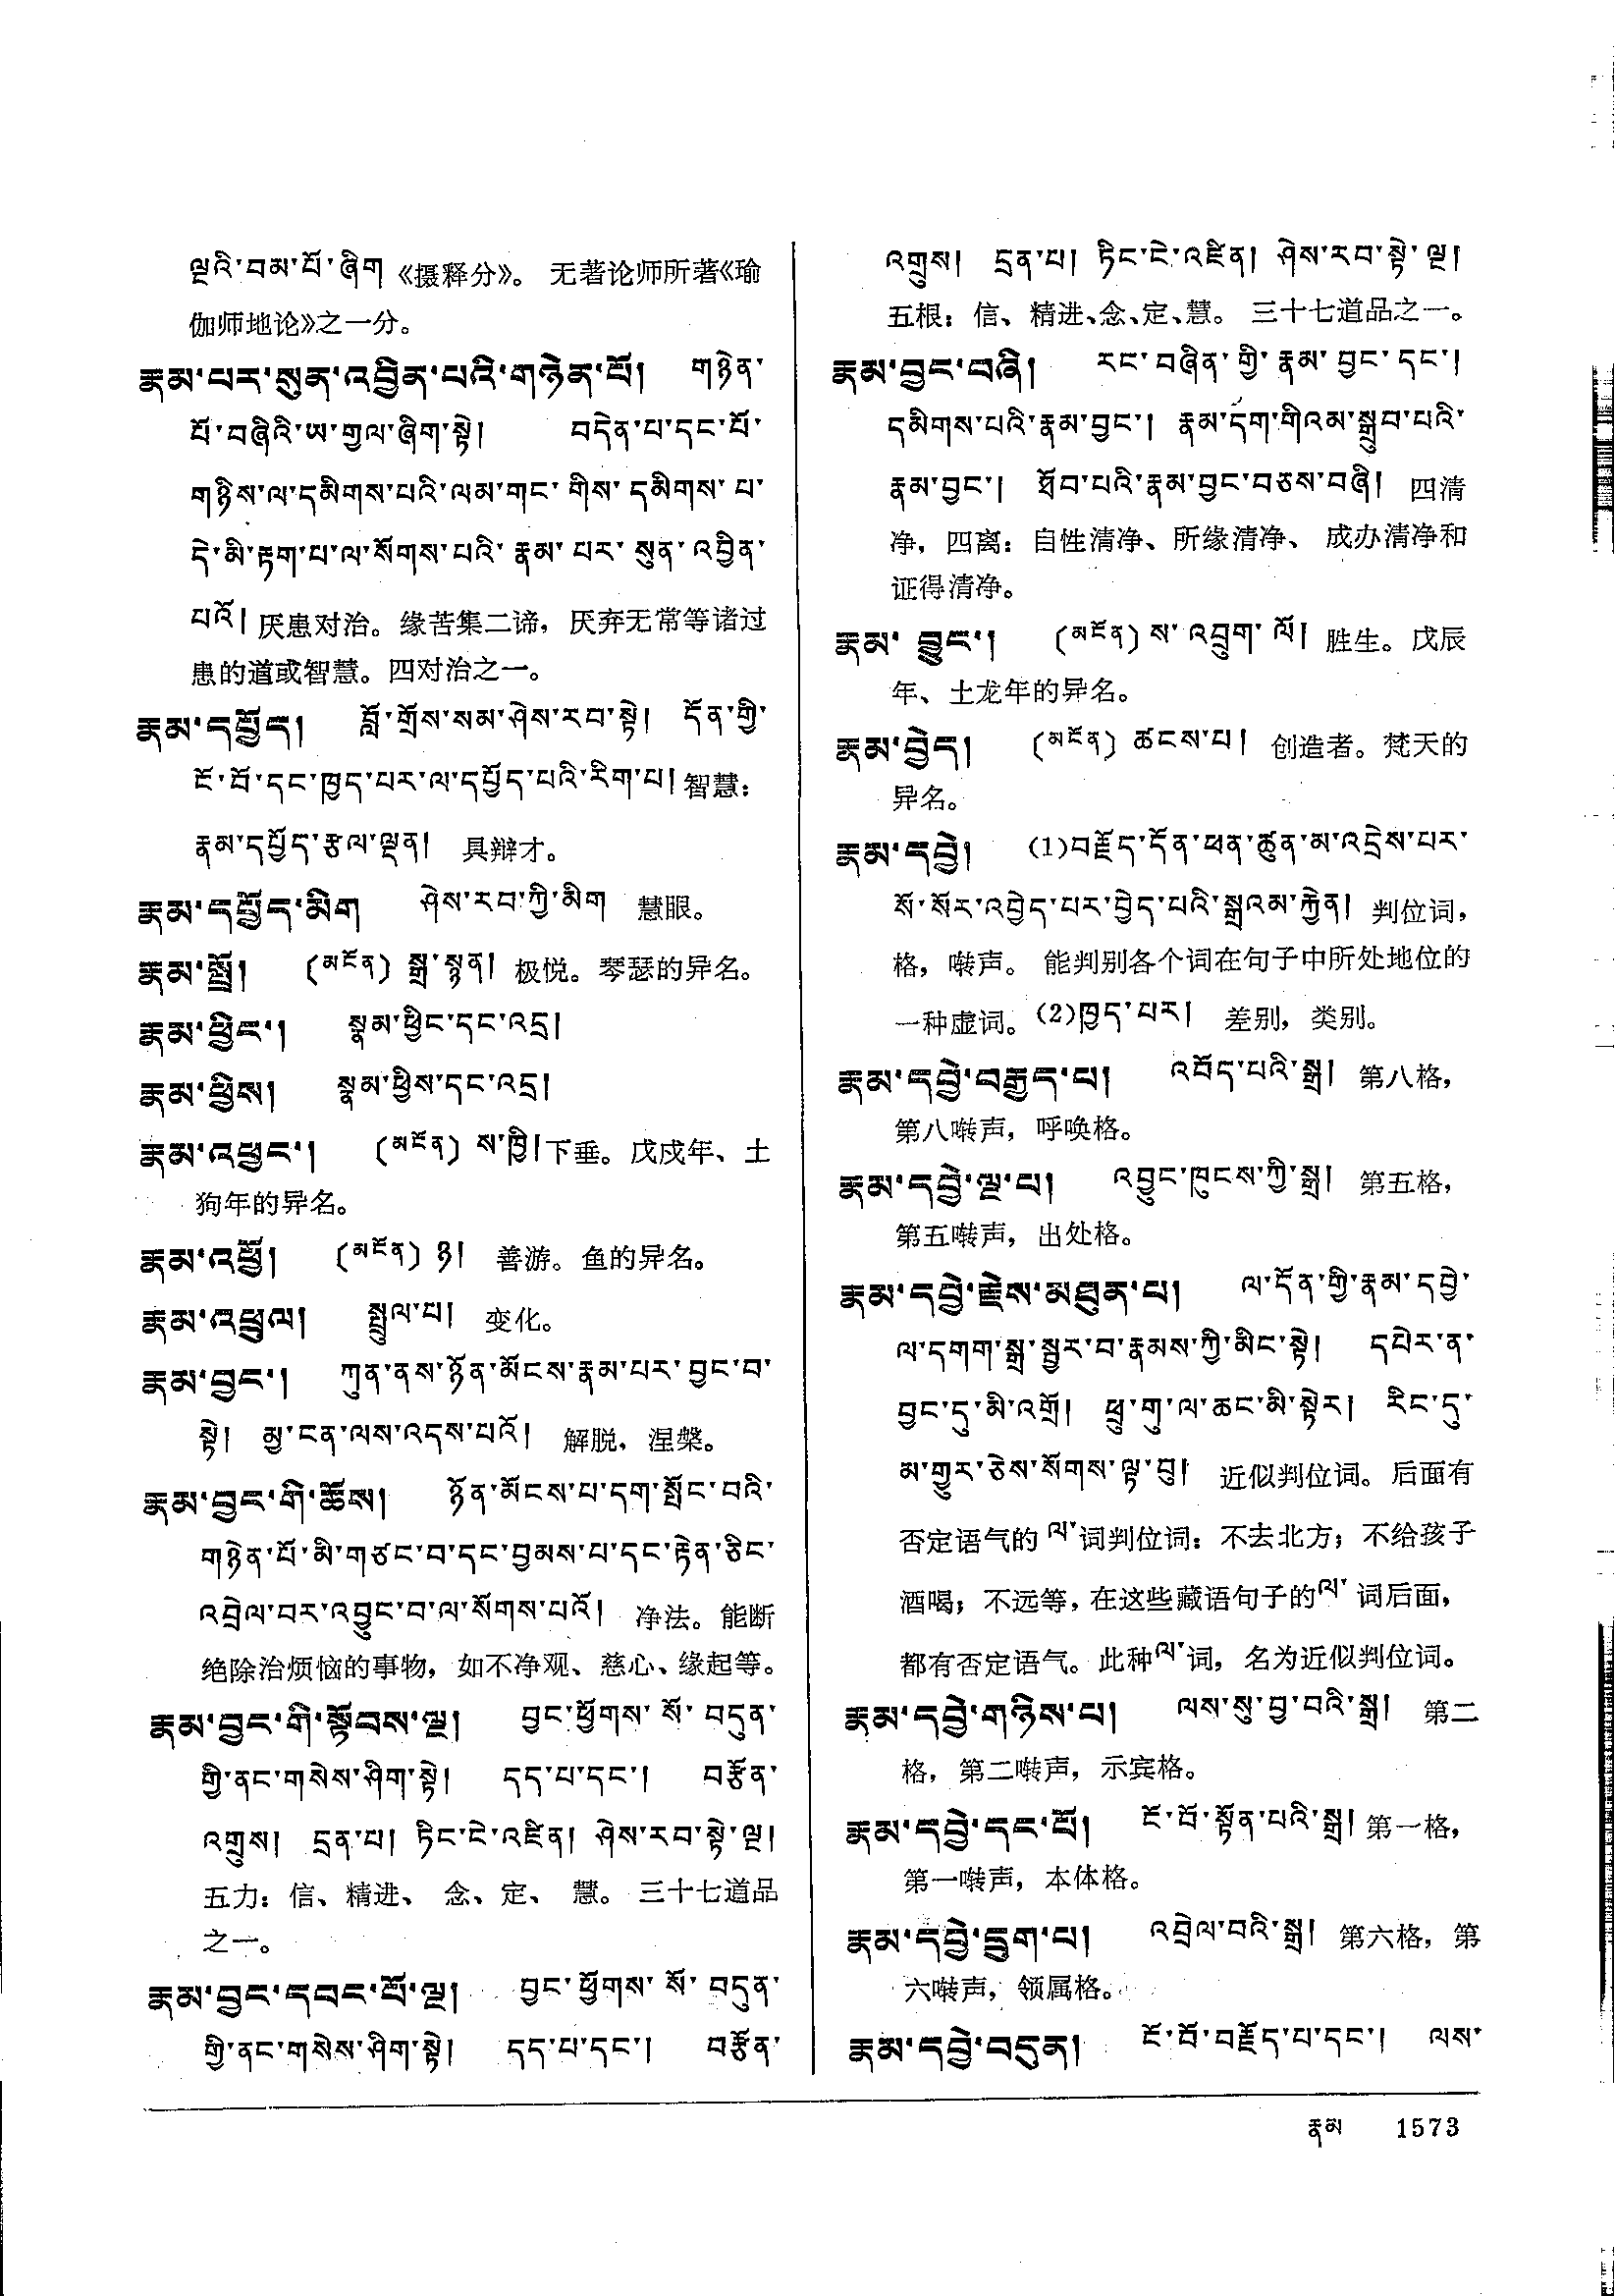 ལྔའི་བམ་པོ་ཞིག《摄释分》。 无著论师所著《瑜
伽师地论》之一分。
རྣམ་པར་སུན་འབྱིན་པའི་གཉེན་པོ། གཉེན་
པོ་བཞིའི་ཡ་གྱལ་ཞིག་སྟེ། བདེན་པ་དང་པོ་
གཉིས་ལ་དམིགས་པའི་ལམ་གང་གིས་དམིགས་པ་
དེ་མི་རྟག་པ་ལ་སོགས་པའི་རྣམ་པར་སུན་འབྱིན་
པའོ། 厌患对治。缘苦集二谛，厌弃无常等诸过
患的道或智慧。四对治之一。
རྣམ་དཔྱོད། བློ་གྲོས་སམ་ཤེས་རབ་སྟེ། དོན་གྱི་
ངོ་བོ་དང་ཁྱད་པར་ལ་དཔྱོད་པའི་རིག་པ། 智慧：
རྣམ་དཔྱོད་རྩལ་ལྡན། 具辩才。
རྣམ་དཔྱོད་མིག ཤེས་རབ་ཀྱི་མིག 慧眼。
རྣམ་སྤྲོ། (མངོན) སྒྲ་སྙན། 极悦。琴瑟的异名。
རྣམ་ཕྱིང་། སྣམ་ཕྱིང་དང་འདྲ།
རྣམ་ཕྱིས། སྣམ་ཕྱིས་དང་འདྲ།
རྣམ་འཕྱང་། (མངོན) ས་ཁྱི། 下垂。戊戌年、土
狗年的异名。
རྣམ་འཕྱོ། (མངོན) ཉ། 善游。鱼的异名。
རྣམ་འཕྲུལ། སྤྲུལ་པ། 变化。
རྣམ་བྱང་། ཀུན་ནས་ཉོན་མོངས་རྣམ་པར་བྱང་བ་
སྟེ། མྱ་ངན་ལས་འདས་པའོ། 解脱，涅槃。
རྣམ་བྱང་གི་ཆོས། ཉོན་མོངས་པ་དག་སྤོང་བའི་
གཉེན་པོ་མི་གཙང་བ་དང་བྱམས་པ་དང་རྟེན་ཅིང་
འབྲེལ་བར་འབྱུང་བ་ལ་སོགས་པའོ། 净法。能断
绝除治烦恼的事物，如不净观、慈心、缘起等。
རྣམ་བྱང་གི་སྟོབས་ལྔ། བྱང་ཕྱོགས་སོ་བདུན་
གྱི་ནང་གསེས་ཤིག་སྟེ། དད་པ་དང་། བརྩོན་
འགྲུས། དྲན་པ། ཏིང་ངེ་འཛིན། ཤེས་རབ་སྟེ་ལྔ།
五力：信、精进、念、定、慧。三十七道品
之一。
རྣམ་བྱང་དབང་པོ་ལྔ། བྱང་ཕྱོགས་སོ་བདུན་
གྱི་ནང་གསེས་ཤིག་སྟེ། དད་པ་དང་། བརྩོན་
འགྲུས། དྲན་པ། ཏིང་ངེ་འཛིན། ཤེས་རབ་སྟེ་ལྔ།
五根：信、精进、念、定、慧。三十七道品之一。
རྣམ་བྱང་བཞི། རང་བཞིན་གྱི་རྣམ་བྱང་དང་།
དམིགས་པའི་རྣམ་བྱང་། རྣམ་དག་གིའམ་སྒྲུབ་པའི་
རྣམ་བྱང་། ཐོབ་པའི་རྣམ་བྱང་བཅས་བཞི། 四清
净，四离：自性清净、所缘清净、成办清净和
证得清净。
རྣམ་བྱུང་། (མངོན) ས་འབྲུག་ལོ། 胜生。戊辰
年、土龙年的异名。
རྣམ་བྱེད། (མངོན) ཚངས་པ། 创造者。梵天的
异名。
རྣམ་དབྱེ། (1)བརྗོད་དོན་ཕན་ཚུན་མ་འདྲེས་པར་
སོ་སོར་འབྱེད་པར་བྱེད་པའི་སྒྲའམ་རྐྱེན། 判位词，
格，啭声。 能判别各个词在句子中所处地位的
一种虚词。(2)ཁྱད་པར། 差别，类别。
རྣམ་དབྱེ་བརྒྱད་པ། འབོད་པའི་སྒྲ། 第八格，
第八啭声，呼唤格。
རྣམ་དབྱེ་ལྔ་པ། འབྱུང་ཁུངས་ཀྱི་སྒྲ། 第五格，
第五啭声，出处格。
རྣམ་དབྱེ་རྗེས་མཐུན་པ། ལ་དོན་གྱི་རྣམ་དབྱེ་
ལ་དགག་སྒྲ་སྦྱར་བ་རྣམས་ཀྱི་མིང་སྟེ། དཔེར་ན་
བྱང་དུ་མི་འགྲོ། ཕྲུ་གུ་ལ་ཆང་མི་སྟེར། རིང་དུ་
མ་གྱུར་ཅེས་སོགས་ལྟ་བུ། 近似判位词。后面有
否定语气的 ལ་ 词判位词：不去北方；不给孩子
酒喝；不远等，在这些藏语句子的ལ་ 词后面，
都有否定语气。此种ལ་词，名为近似判位词。
རྣམ་དབྱེ་གཉིས་པ། ལས་སུ་བྱ་བའི་སྒྲ། 第二
格，第二啭声，示宾格。
རྣམ་དབྱེ་དང་པོ། ངོ་བོ་སྟོན་པའི་སྒྲ། 第一格，
第一啭声，本体格。
རྣམ་དབྱེ་དྲུག་པ། འབྲེལ་བའི་སྒྲ། 第六格，第
六啭声，领属格。
རྣམ་དབྱེ་བདུན། ངོ་བོ་བརྗོད་པ་དང་། ལས་
རྣམ 1573